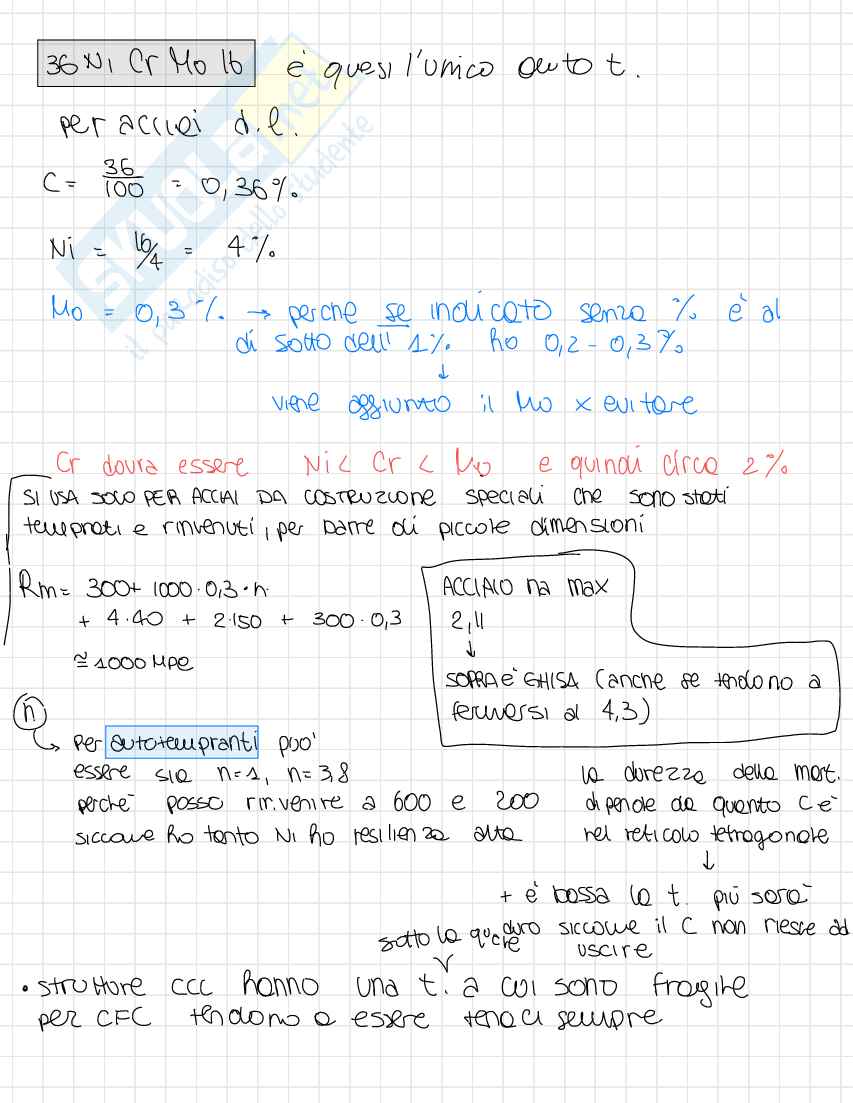 36 Ni Cr Mo 16 è quasi l'unico auto t.
per acciai d.l.
C = 36/100 = 0,36%.
Ni = 16/4 = 4%.
Mo = 0,3% → perche se indicato senza % è al
di sotto dell' 1% ho 0,2 - 0,3%
↓
viene aggiunto il Mo x evitare
Cr dovra essere Ni < Cr < Mo e quindi circa 2%
SI USA SOLO PER ACCIAI DA COSTRUZIONE speciali che sono stati
temprati e rinvenuti, per barre di piccole dimensioni
Rm = 300 + 1000 · 0,3 · n
+ 4·40 + 2·150 + 300·0,3
≅ 1000 MPa
ACCIAIO ha max
2,11
↓
SOPRA È GHISA (anche se tendono a
fermarsi al 4,3)
n
→ per autotempranti puo'
essere sia n=1, n=3,8
perchè posso rinvenire a 600 e 200
siccome ho tanto Ni ho resilienza alta
la durezza della mart.
dipende da quanto C è
nel reticolo tetragonale
↓
+ è bassa la t. più sarà
duro siccome il C non riesce ad
uscire
sotto la quale
• strutture CCC hanno una t. a cui sono fragile
per CFC tendono a essere tenaci sempre
SKUOLA.net
il paradiso dello studente